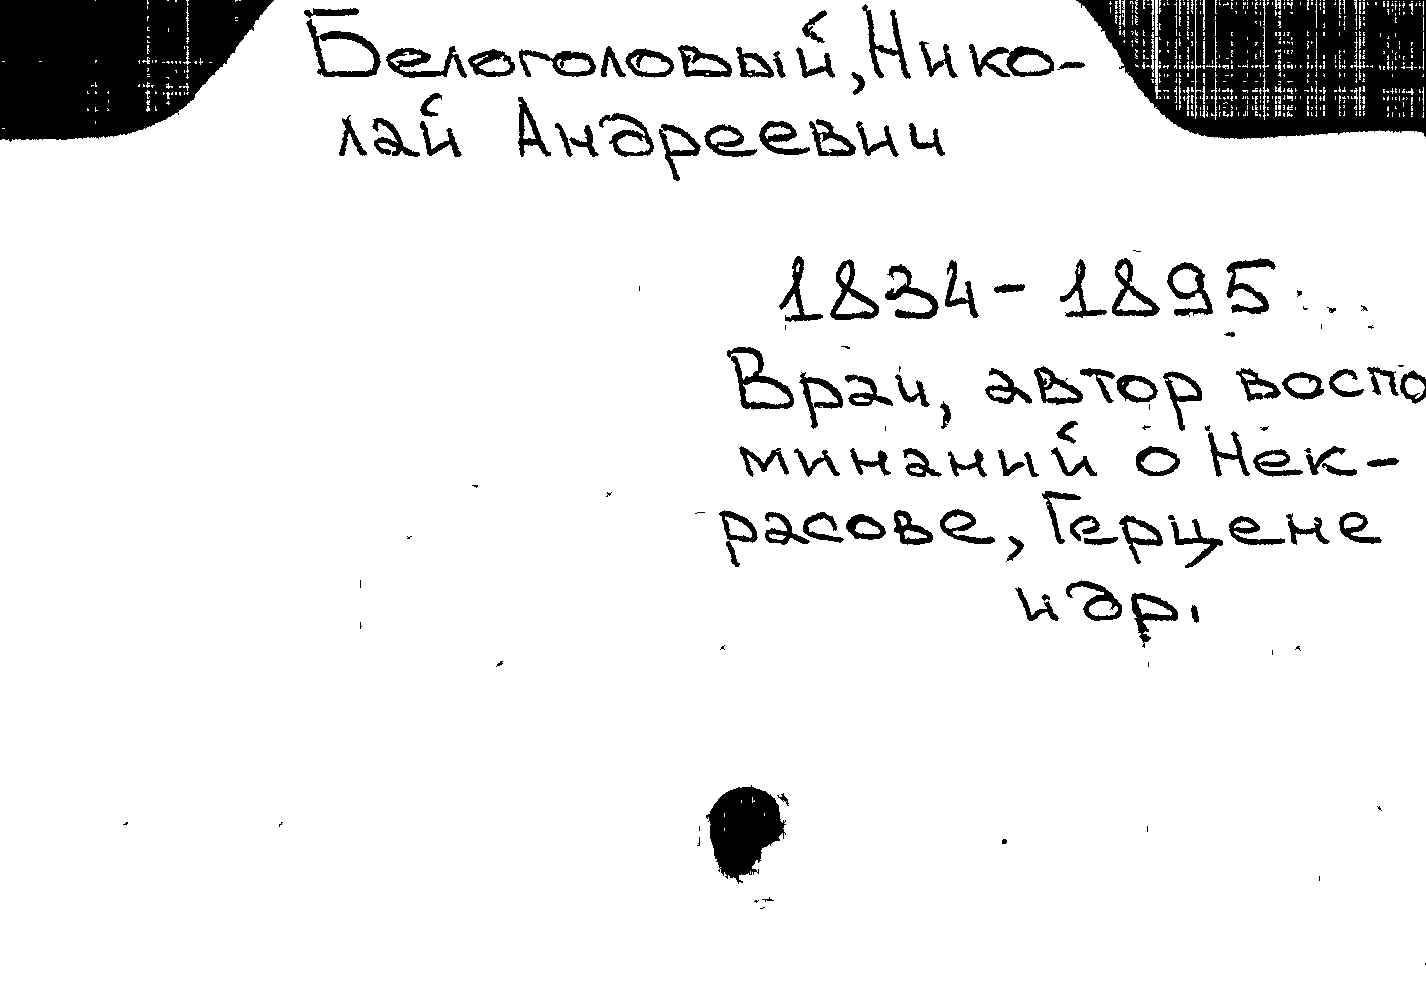 Белоголовый, Нико-
лай Андреевич
1834-1895
Врач, автор воспо
минаний о Нек-
расове, Герцене
и др.